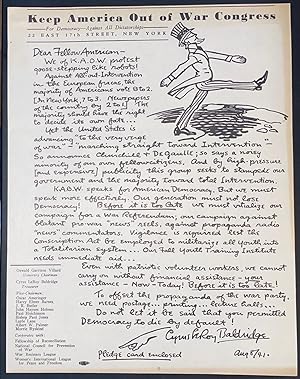 Keep America Out of War Congress
For Democracy—Against All Dictatorships
22 EAST 17th STREET, NEW YORK
Dear Fellow American—
We of K.A.O.W. protest
goose-stepping like robots!
Against All-out-Intervention
in the European fracas, the
majority of Americans vote 8 to 2.
(In New York, 7 to 3. Newspapers
of the country by 2 to 1.) The
majority should have the right
to decide its own fate...
Yet the United States is
advancing "to the very verge
of war"—"marching straight toward Intervention."
So announces Churchill &
minority of our own fellow citizens. And by high-pressure
(and expensive) publicity this group seeks to stampede our
government and the majority toward total Intervention.
K.A.O.W. speaks for American Democracy. But we must
speak more effectively. Our generation must not lose
Democracy! Before it is too late we must vitalize our
campaign for a War Referendum; our campaign against
blatant pro-war news reels, against propaganda radio
"news" commentators. Vigilance is required lest the
Conscription Act be employed to militarize all youth into
a Totalitarian system... Our Fall Youth Training Institute
needs immediate aid...
Even with patriotic volunteer workers, we cannot
carry on without financial assistance—your
assistance—Now—Today! Before it is too late!
To offset the propaganda of the war party,
we need postage... printing... lecture halls...
Do not let it be said that you permitted
Democracy to die by default!
Cyrus LeRoy Baldridge
Pledge card enclosed
Aug 5/41.
Oswald Garrison Villard
Cyrus LeRoy Baldridge
Treasurer
Oscar Ameringer
Harry Elmer Barnes
John Haynes Holmes
Paul Hutchinson
Albert W. Palmer
Co-operating with:
Fellowship of Reconciliation
National Council for Prevention
of War
War Resisters League
Women's International League
for Peace and Freedom